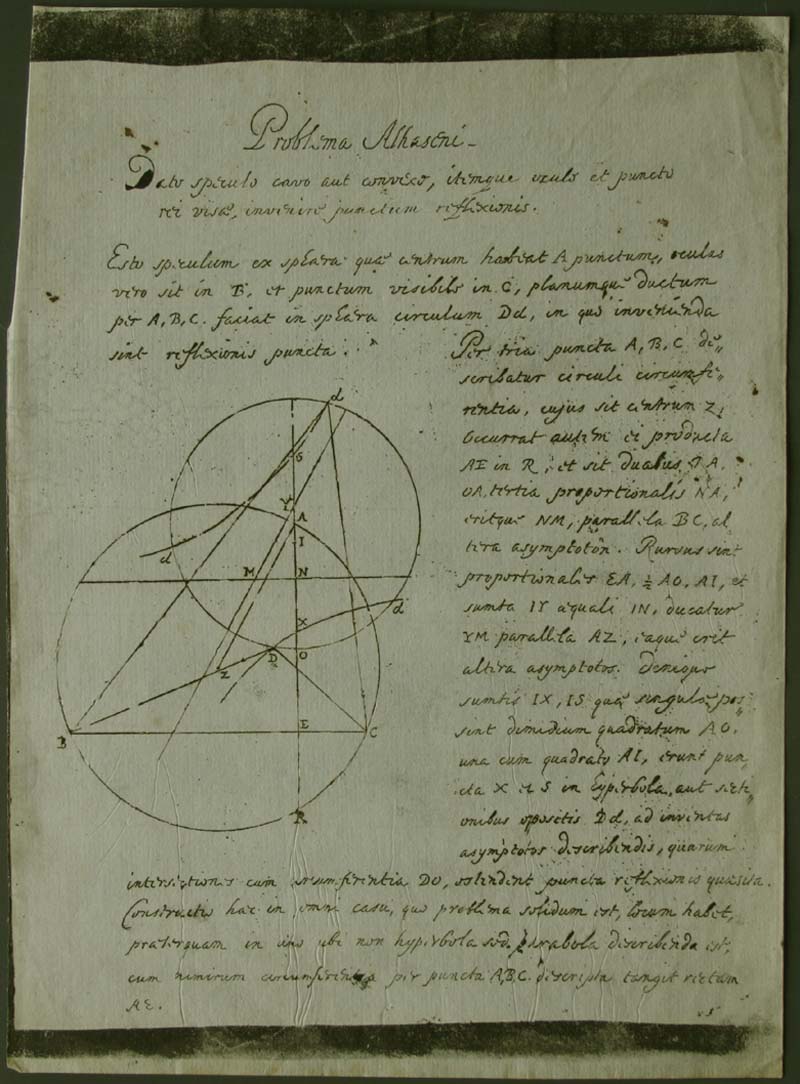 Problema Alhaseni
Dato speculo cavo aut convexo, itemque oculo et puncto
rei visæ, invenire punctum reflexionis.
Esto speculum ex sphæra quæ centrum habeat A punctum, oculus
vero sit in B, et punctum visibile in C, planumque ductum
per A, B, C. faciat in sphæra circulum Dd, in quo invenienda
sint reflexionis puncta.
Per tria puncta A, B, C de„
scribatur circuli circumfe„
rentia, cujus sit centrum Z,
Occurrat autem ei producta
AE in R, et sit duabus RA,
OA, tertia proportionalis NA,
eritque NM, parallela BC, al
tera asymptotôn. Rursus sint
proportionalis EA, ½ AO, AI, et
sumta IY æquali IN, ducatur
YM parallela AZ, eaque erit
altera asymptotos. Denique
sumtis IX, IS quæ singulæ pos„
sint dimidium quadratum AO,
una cum quadrato AI, erunt pun„
cta X et S in hyperbola, aut secti„
onibus oposetis Dd, ad inventas
asymptotos describendis, quarum
intersectiones cum circumferentia DO, ostendent puncta reflexionis quæsita.
Constructio hæc in omni casu, quo problema solidum est, locum habet,
præterquam in uno ubi non hyperbola sed parabola describenda est,
cum nimirum circumferentia per puncta A,B,C. descripta tangit rectam
AE.
d
S
Y
A
I
d
M
N
d
X
D
O
Z
E
B
C
R